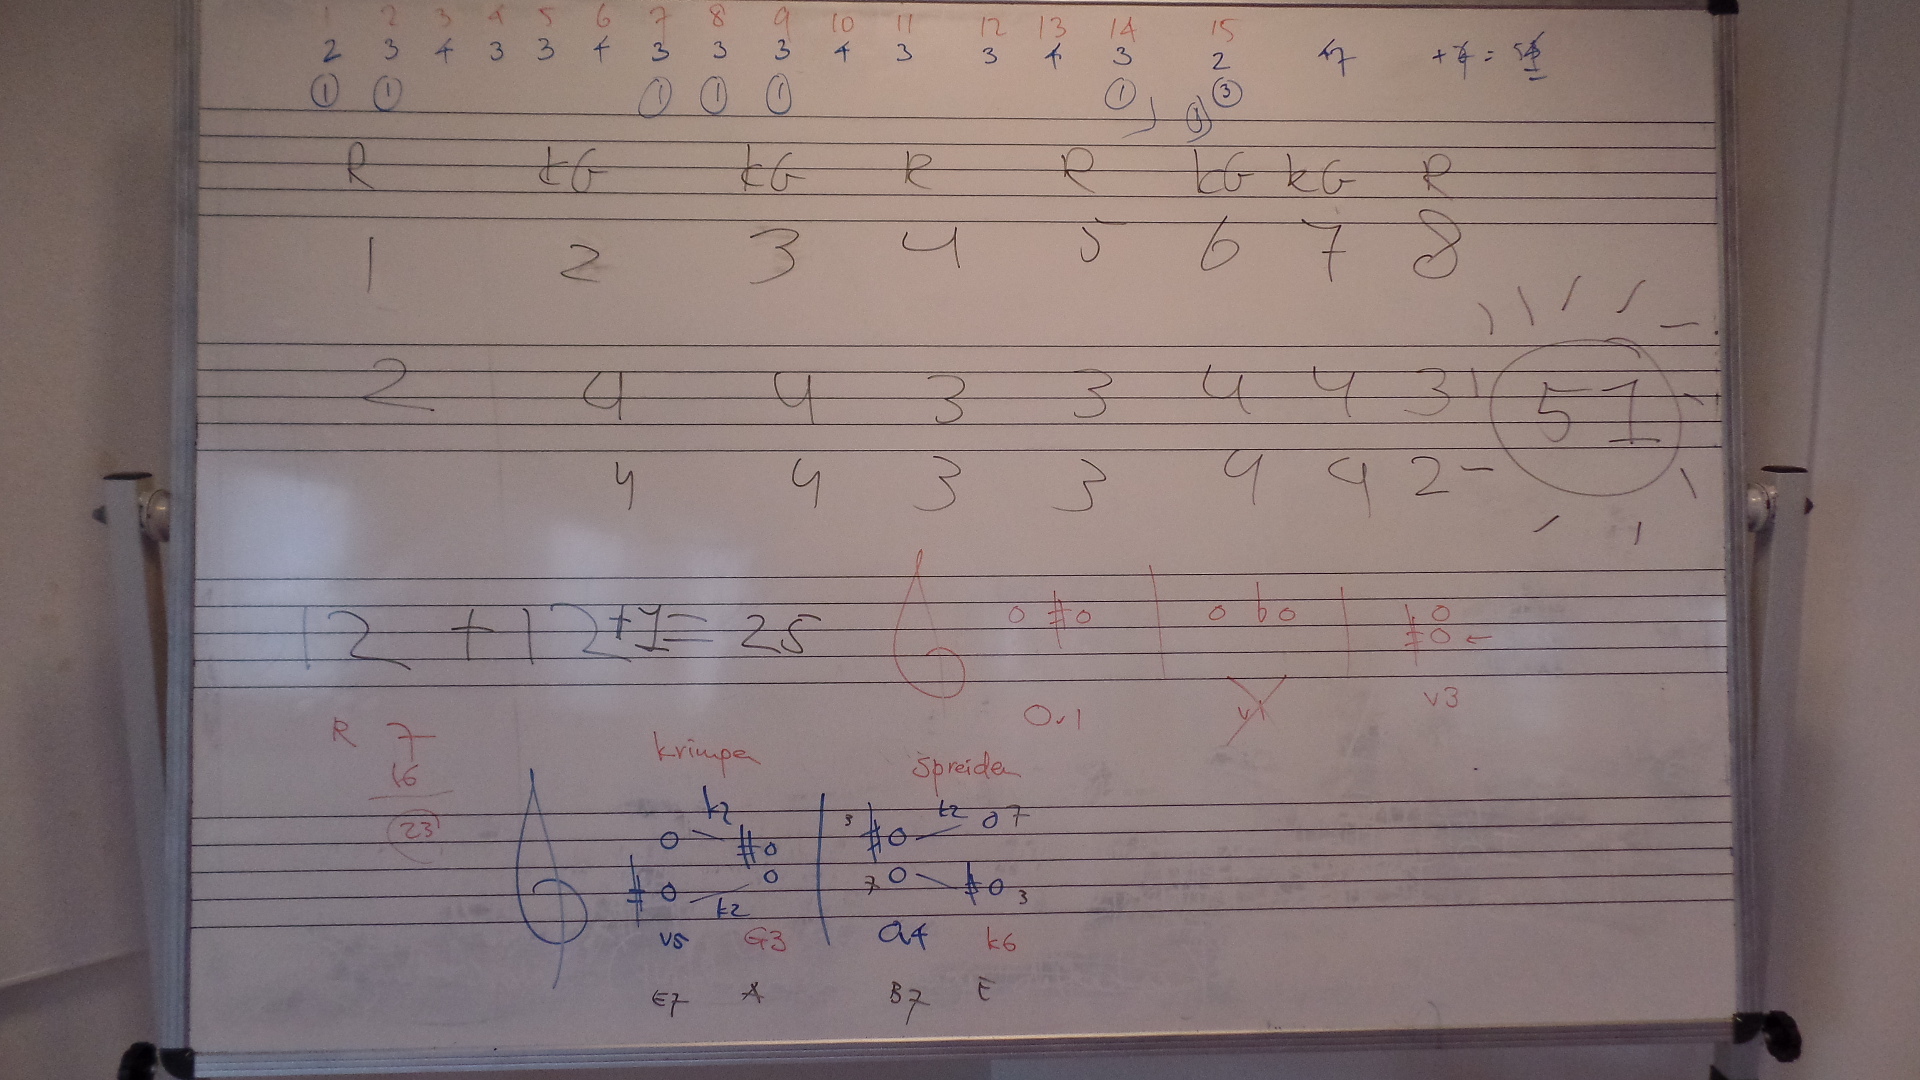 1 2 3 4 5 6 7 8 9 10 11 12 13 14 15
2 3 4 3 3 4 3 3 3 4 3 3 4 3 2 47
1 1 1 1 1 1 3
R kG kG R R kG kG R
1 2 3 4 5 6 7 8
2 4 4 3 3 4 4 3 51
4 4 3 3 4 4 2
12 + 12 + 1 = 25
o #o o bo o #o
Ov1 v1 v3
R 7
16
23
krimpen spreiden
k2 3 #o k2 o 7
o #o
#o o 7 o #o 3
k2
v5 G3 O4 k6
E7 A B7 E